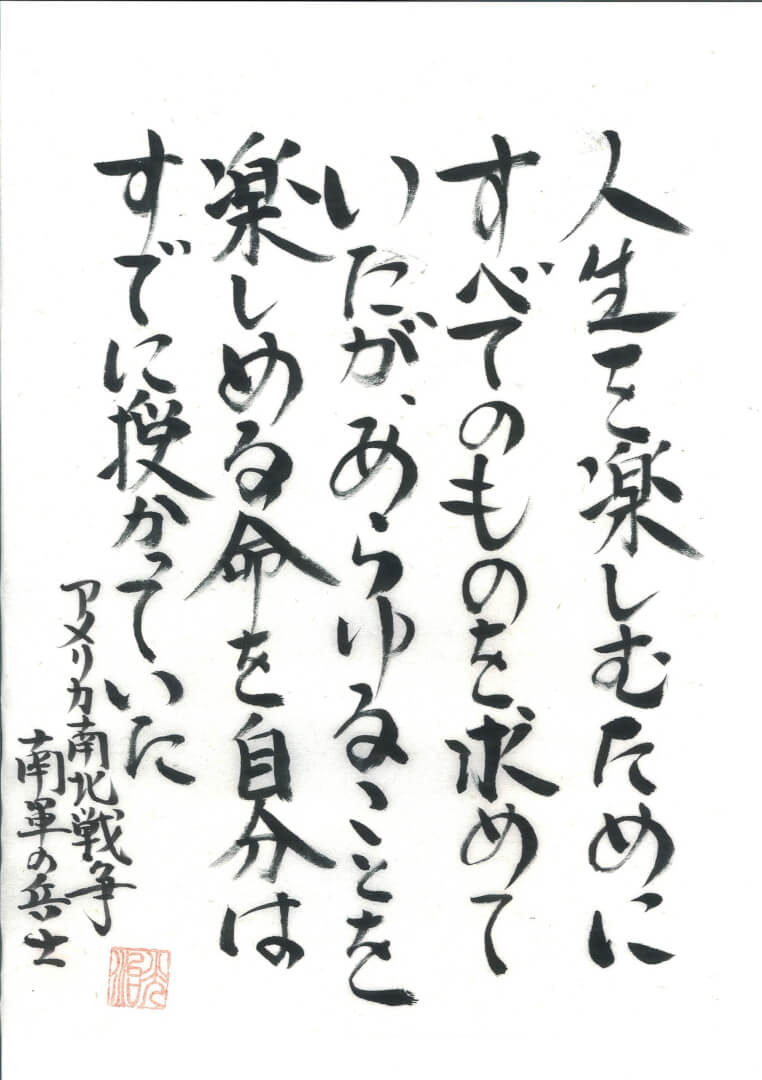 人生を楽しむために
すべてのものを求めて
いたが、あらゆることを
楽しめる命を自分は
すでに授かっていた
アメリカ南北戦争
南軍の兵士